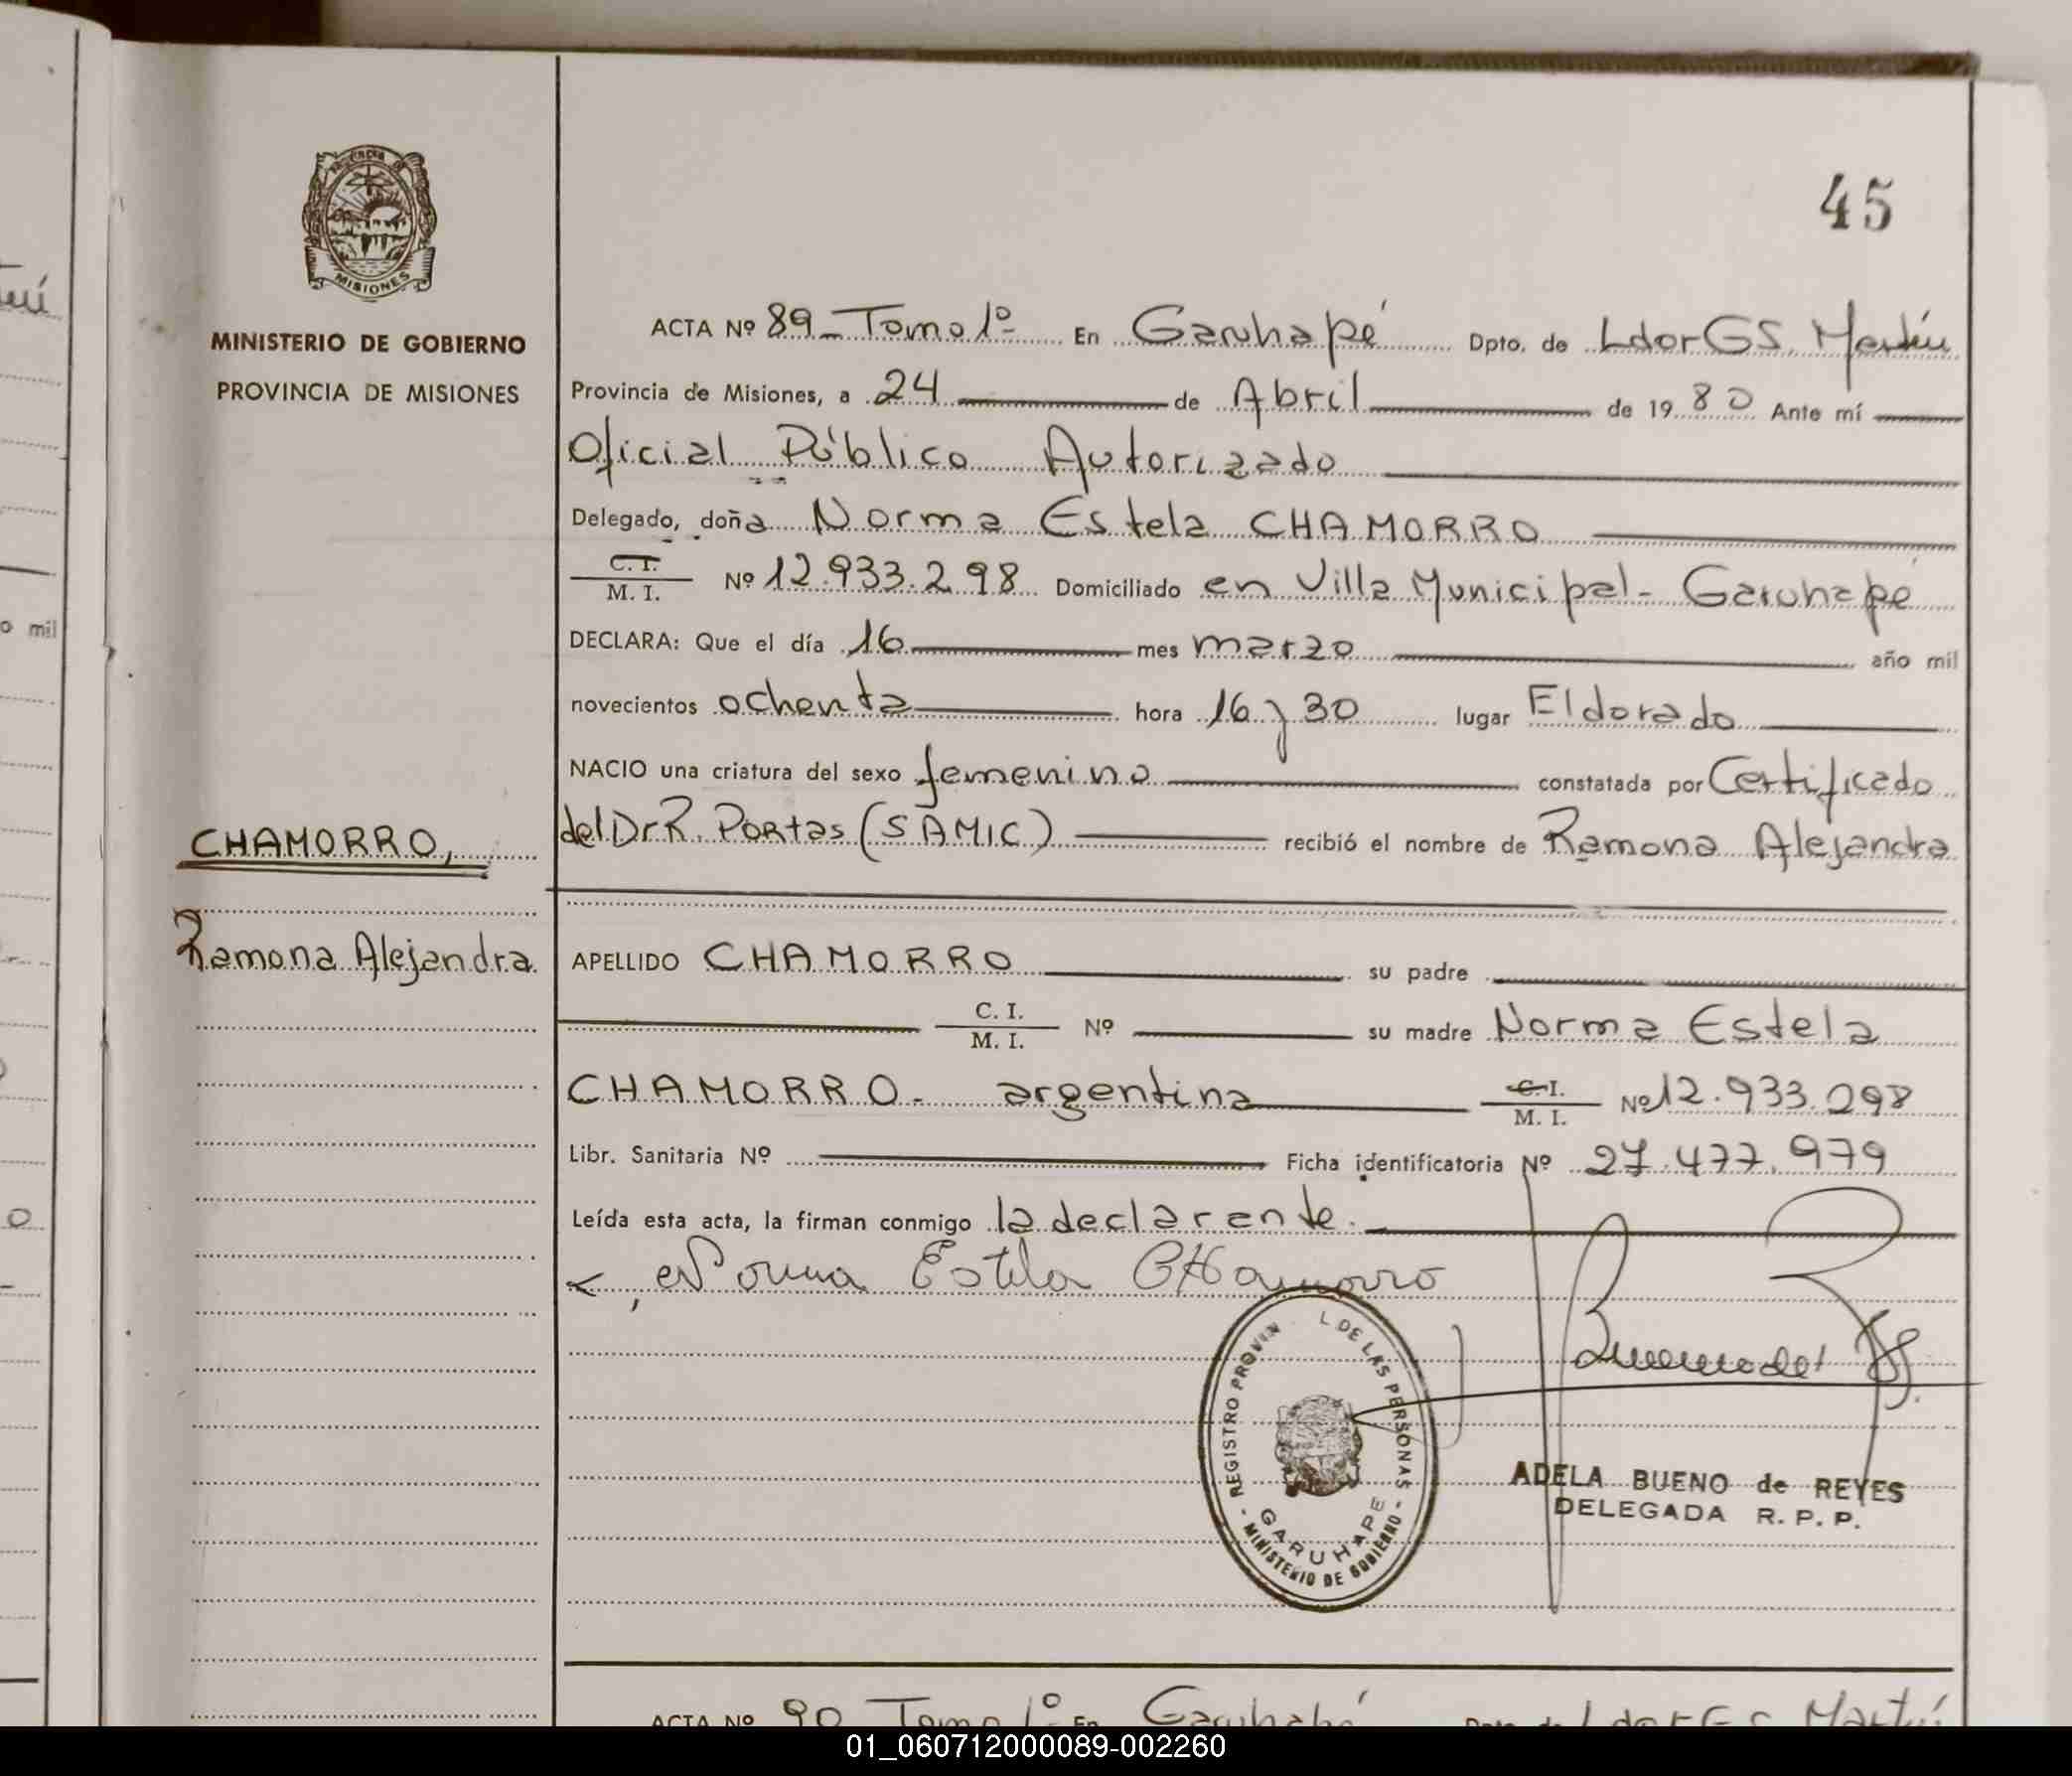 45
MISIONES
MINISTERIO DE GOBIERNO
PROVINCIA DE MISIONES
CHAMORRO,
Ramona Alejandra
ACTA Nº 89_Tomo 1º En Garuhapé Dpto. de LdorGS. Martín
Provincia de Misiones, a 24 de Abril de 1980 Ante mí
Oficial Público Autorizado
Delegado, doña Norma Estela CHAMORRO
C. I.
M. I. Nº 12.933.298 Domiciliado en Villa Municipal- Garuhapé
DECLARA: Que el día 16 mes marzo año mil
novecientos ochenta hora 16 y 30 lugar Eldorado
NACIO una criatura del sexo femenino constatada por Certificado
del Dr R. Portas (SAMIC) recibió el nombre de Ramona Alejandra
APELLIDO CHAMORRO su padre
C. I.
M. I. Nº su madre Norma Estela
CHAMORRO- argentina C.I.
M. I. Nº 12.933.298
Libr. Sanitaria Nº Ficha identificatoria Nº 27.477.979
Leída esta acta, la firman conmigo la declarante.
Norma Estela CHamorro
REGISTRO PROVIN L DE LAS PERSONAS
GARUHAPE
- MINISTERIO DE GOBIERNO -
ADELA BUENO de REYES
DELEGADA R. P. P.
ACTA Nº 90 Tomo 1º En Garuhapé Dpto de LdorGS Martín
01_060712000089-002260